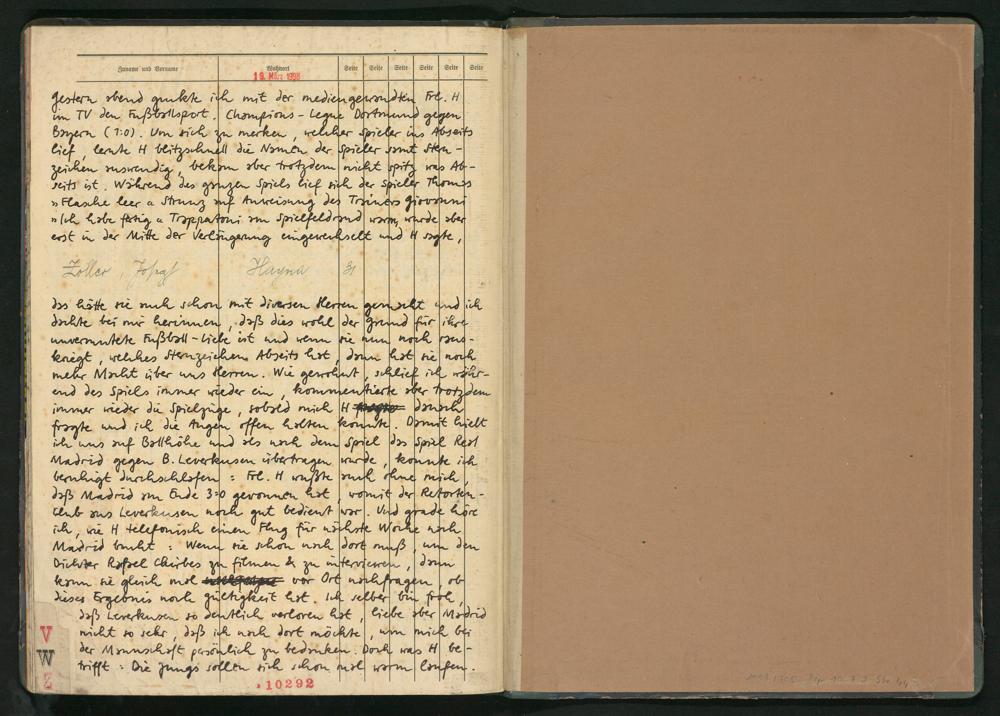 Zuname und Vorname Wohnort Seite Seite Seite Seite Seite Seite
19. März 1998
gestern abend guckte ich mit der mediengewandten Frl. H
im TV den Fußballsport. Champions-Legue Dortmund gegen
Bayern (1:0). Um sich zu merken, welcher Spieler ins Abseits
lief, lernte H blitzschnell die Namen der Spieler samt Stern-
zeichen auswendig, bekam aber trotzdem nicht spitz was Ab-
seits ist. Während des ganzen Spiels lief sich der Spieler Thomas
»Flasche leer« Strunz auf Anweisung des Trainers Giovanni
»Ich habe fertig« Trappatoni am Spielfeldrand warm, wurde aber
erst in der Mitte der Verlängerung eingewechselt und H sagte,
Zoller, Josef Hayna 31
das hätte sie auch schon mit diversen Herren gemacht und ich
dachte bei mir herinnen, daß dies wohl der Grund für ihre
unvermutete Fußball-Liebe ist und wenn sie nun noch raus-
kriegt, welches Sternzeichen Abseits hat, dann hat sie noch
mehr Macht über uns Herren. Wie gewohnt, schlief ich währ-
end des Spiels immer wieder ein, kommentierte aber trotzdem
immer wieder die Spielzüge, sobald mich H danach
fragte und ich die Augen offen halten konnte. Damit hielt
ich uns auf Ballhöhe und als nach dem Spiel das Spiel Real
Madrid gegen B. Leverkusen übertragen wurde, konnte ich
beruhigt durchschlafen: Frl. H wußte auch ohne mich,
daß Madrid am Ende 3:0 gewonnen hat, womit der Retorten-
club aus Leverkusen noch gut bedient war. Und grade höre
ich, wie H telefonisch einen Flug für nächste Woche nach
Madrid bucht: Wenn sie schon nach dort muß, um den
Dichter Rafael Chirbes zu filmen & zu interviewen, dann
kann sie gleich mal vor Ort nachfragen, ob
dieses Ergebnis noch gültigkeit hat. Ich selber bin froh,
daß Leverkusen so deutlich verloren hat, liebe aber Madrid
nicht so sehr, daß ich nach dort möchte, um mich bei
der Mannschaft persönlich zu bedanken. Doch was H be-
trifft: Die Jungs sollen sich schon mal warm laufen.
V
W
Z
10292